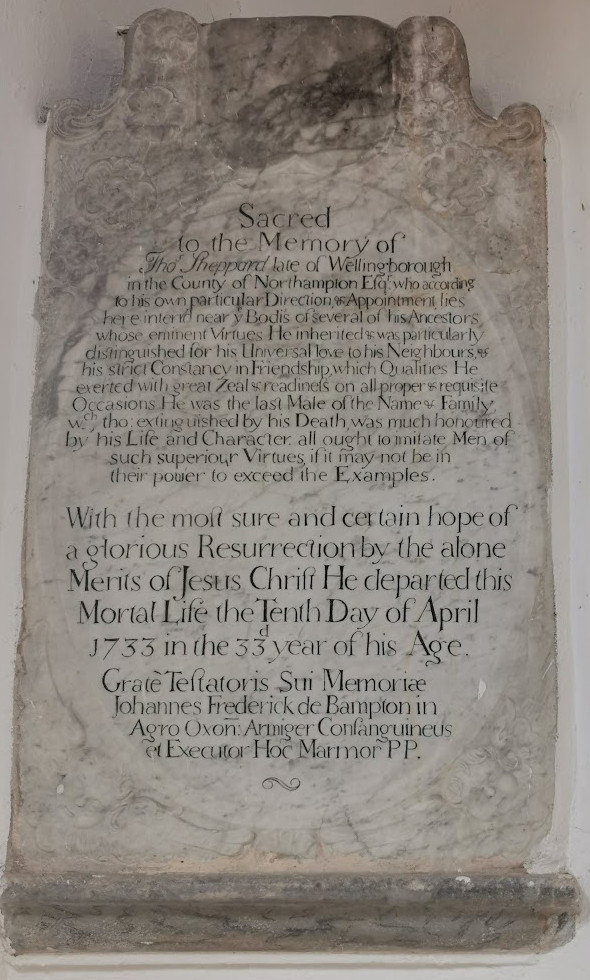 Sacred
to the Memory of
Tho.s Sheppard late of Wellingborough
in the County of Northampton Esq.r who according
to his own particular Direction, & Appointment lies
here interid near y Bodis of several of his Ancestors,
whose eminent Virtues He inherited & was particularly
distinguished for his Universal love to his Neighbours, &
his strict Constancy in Friendship, which Qualities He
exerted with great Zeal & readiness on all proper & requisite
Occasions He was the last Male of the Name & Family,
w.ch tho: extinguished by his Death, was much honoured
by his Life and Character. all ought to imitate Men of
such superiour Virtues, if it may not be in
their power to exceed the Examples.
With the most sure and certain hope of
a glorious Resurrection by the alone
Merits of Jesus Christ He departed this
Mortal Life the Tenth Day of April
1733 in the 33.d year of his Age.
Gratè Testatoris Sui Memoriæ
Johannes Frederick de Bampton in
Agro Oxon: Armiger Consanguineus
et Executor Hoc Marmor P P.